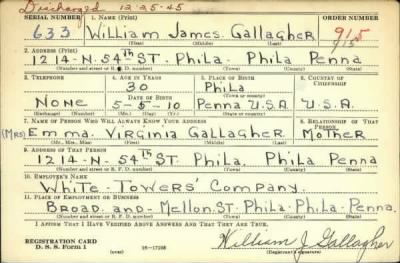 Discharged 12-25-45
SERIAL NUMBER 1. NAME (Print) ORDER NUMBER
633 William James Gallagher 915
(First) (Middle) (Last)
2. ADDRESS (Print)
1214-N. 54th ST. Phila. Phila Penna
(Number and street or R. F. D. number) (Town) (County) (State)
3. TELEPHONE 4. AGE IN YEARS 5. PLACE OF BIRTH 6. COUNTRY OF CITIZENSHIP
30 Phila
DATE OF BIRTH (Town or county)
None 5-5-10 Penna U.S.A U.S.A.
(Exchange) (Number) (Mo.) (Day) (Yr.) (State or country)
7. NAME OF PERSON WHO WILL ALWAYS KNOW YOUR ADDRESS 8. RELATIONSHIP OF THAT PERSON
(Mrs) Emma. Virginia Gallagher. Mother
(Mr., Mrs., Miss) (First) (Middle) (Last)
9. ADDRESS OF THAT PERSON
1214-N-54th ST. Phila. Phila Penna
(Number and street or R. F. D. number) (Town) (County) (State)
10. EMPLOYER'S NAME
White-Towers' Company.
11. PLACE OF EMPLOYMENT OR BUSINESS
Broad-and-Mellon.ST-Phila-Phila-Penna.
(Number and street or R. F. D. number) (Town) (County) (State)
I AFFIRM THAT I HAVE VERIFIED ABOVE ANSWERS AND THAT THEY ARE TRUE.
REGISTRATION CARD
D. S. S. Form 1 (over) 16-17105 William J Gallagher
(Registrant's signature)